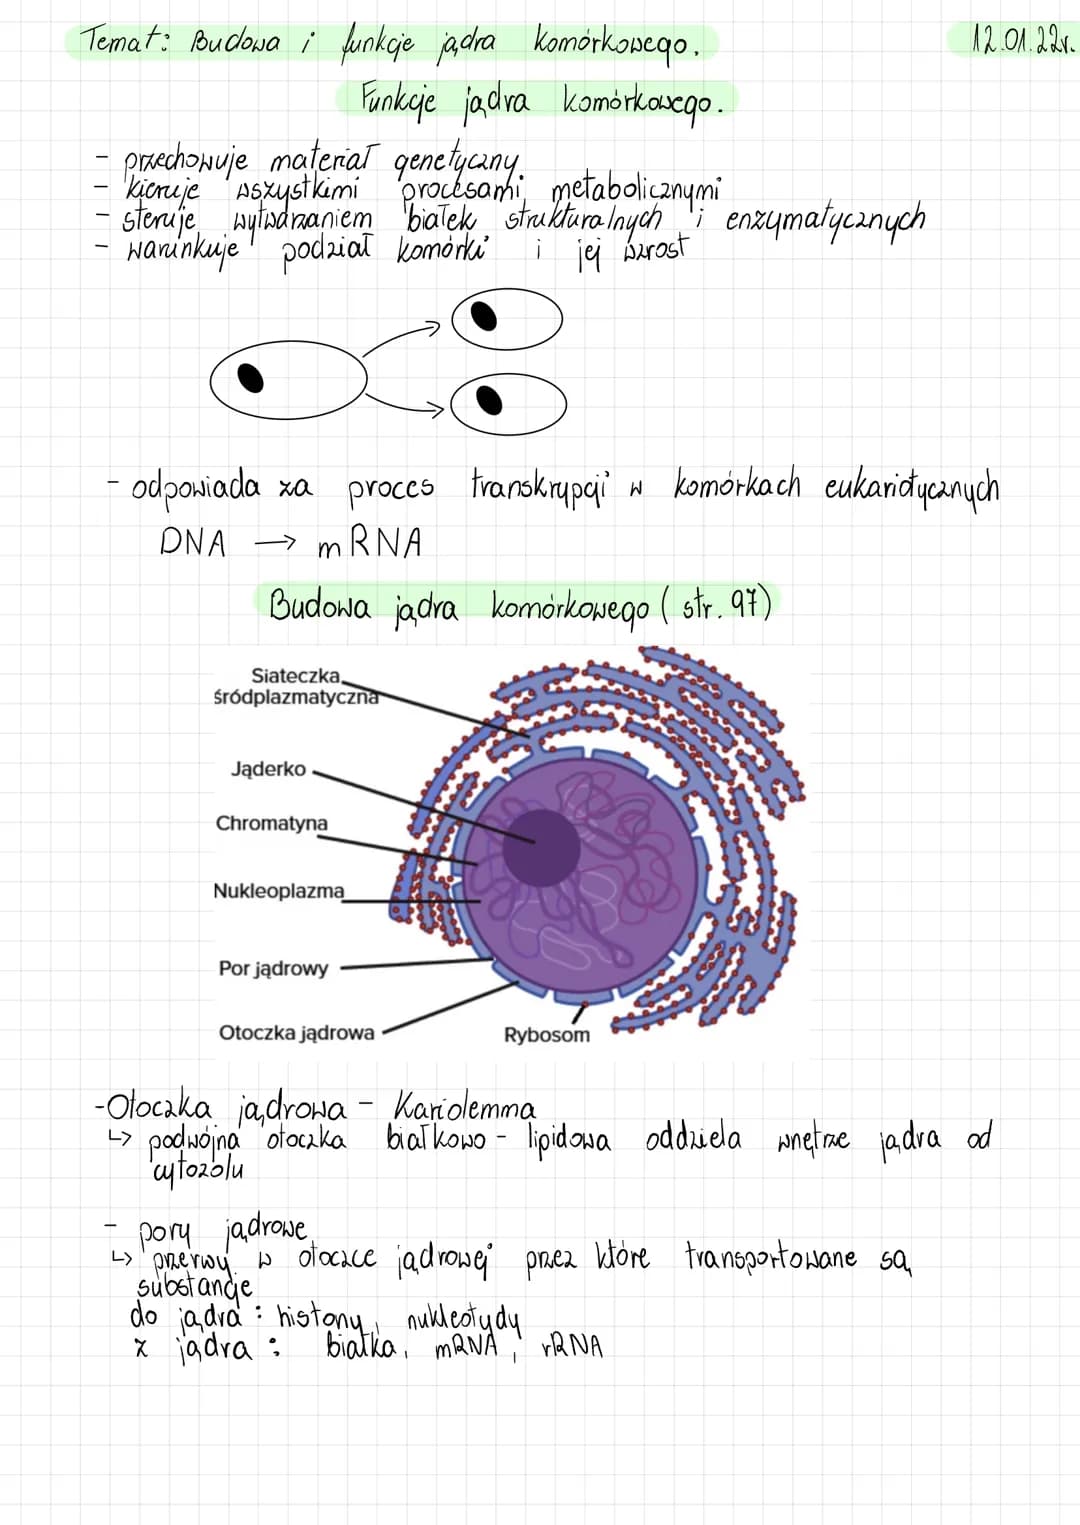 Temat: Budowa i funkcje jądra komórkowego.
12.01.22r.
Funkcje jądra komórkowego.
- przechowuje materiał genetyczny
- kieruje wszystkimi procesami metabolicznymi
- steruje wytwarzaniem białek strukturalnych i enzymatycznych
- warunkuje podział komórki i jej wzrost
- odpowiada za proces transkrypcji w komórkach eukariotycznych
DNA → mRNA
Budowa jądra komórkowego (str. 97)
Siateczka
śródplazmatyczna
Jąderko
Chromatyna
Nukleoplazma
Por jądrowy
Otoczka jądrowa
Rybosom
- Otoczka jądrowa - Kariolemma
↳ podwójna otoczka białkowo - lipidowa oddziela wnętrze jądra od
cytozolu
- pory jądrowe
↳ przerwy w otoczce jądrowej przez które transportowane są
substancje
do jądra : histony, nukleotydy
z jądra : białka, mRNA, rRNA